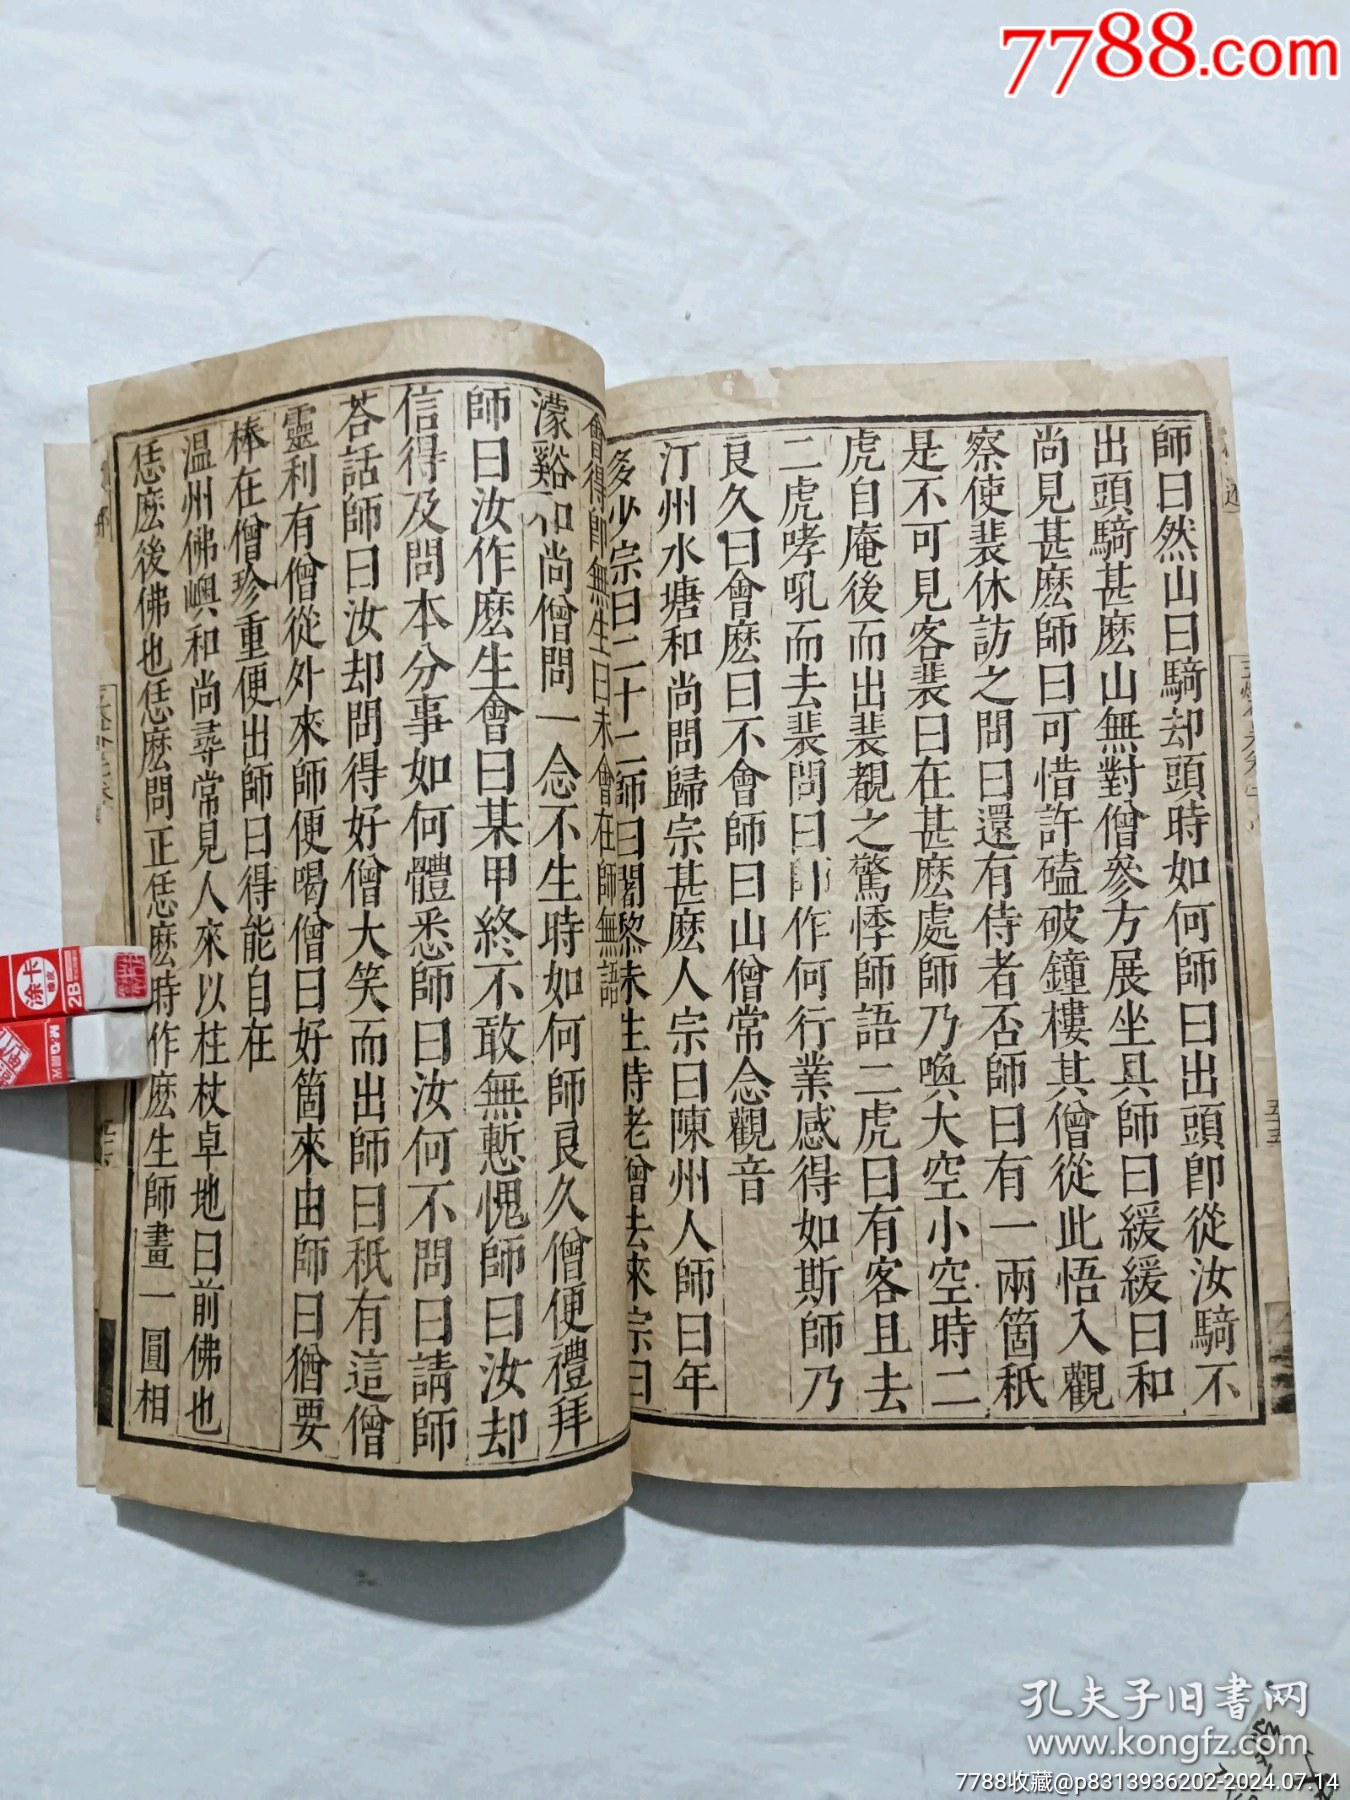 7788.com
師曰然山曰騎却頭時如何師曰出頭卽從汝騎不
出頭騎甚麽山無對僧參方展坐具師曰緩緩曰和
尚見甚麽師曰可惜許磕破鐘樓其僧從此悟入觀
察使裴休訪之問曰還有侍者否師曰有一兩箇秖
是不可見客裴曰在甚麽處師乃喚大空小空時二
虎自庵後而出裴覩之驚悸師語二虎曰有客且去
二虎哮吼而去裴問曰師作何行業感得如斯師乃
良久曰會麽曰不會師曰山僧常念觀音
汀州水塘和尚問歸宗甚麽人宗曰陳州人師曰年
多少宗曰二十二師曰闍黎未生時老僧去來宗曰
會得卽無生曰未會在師無語
濛谿和尚僧問一念不生時如何師良久僧便禮拜
師曰汝作麽生會曰某甲終不敢無慙愧師曰汝却
信得及問本分事如何體悉師曰汝何不問曰請師
荅話師曰汝却問得好僧大笑而出師曰秖有這僧
靈利有僧從外來師便喝僧曰好箇來由師曰猶要
棒在僧珍重便出師曰得能自在
温州佛嶼和尚尋常見人來以柱杖卓地曰前佛也
恁麽後佛也恁麽問正恁麽時作麽生師畫一圓相
涂卡
2B
M&G
孔夫子旧書网
www.kongfz.com
7788收藏@p8313936202-2024.07.14